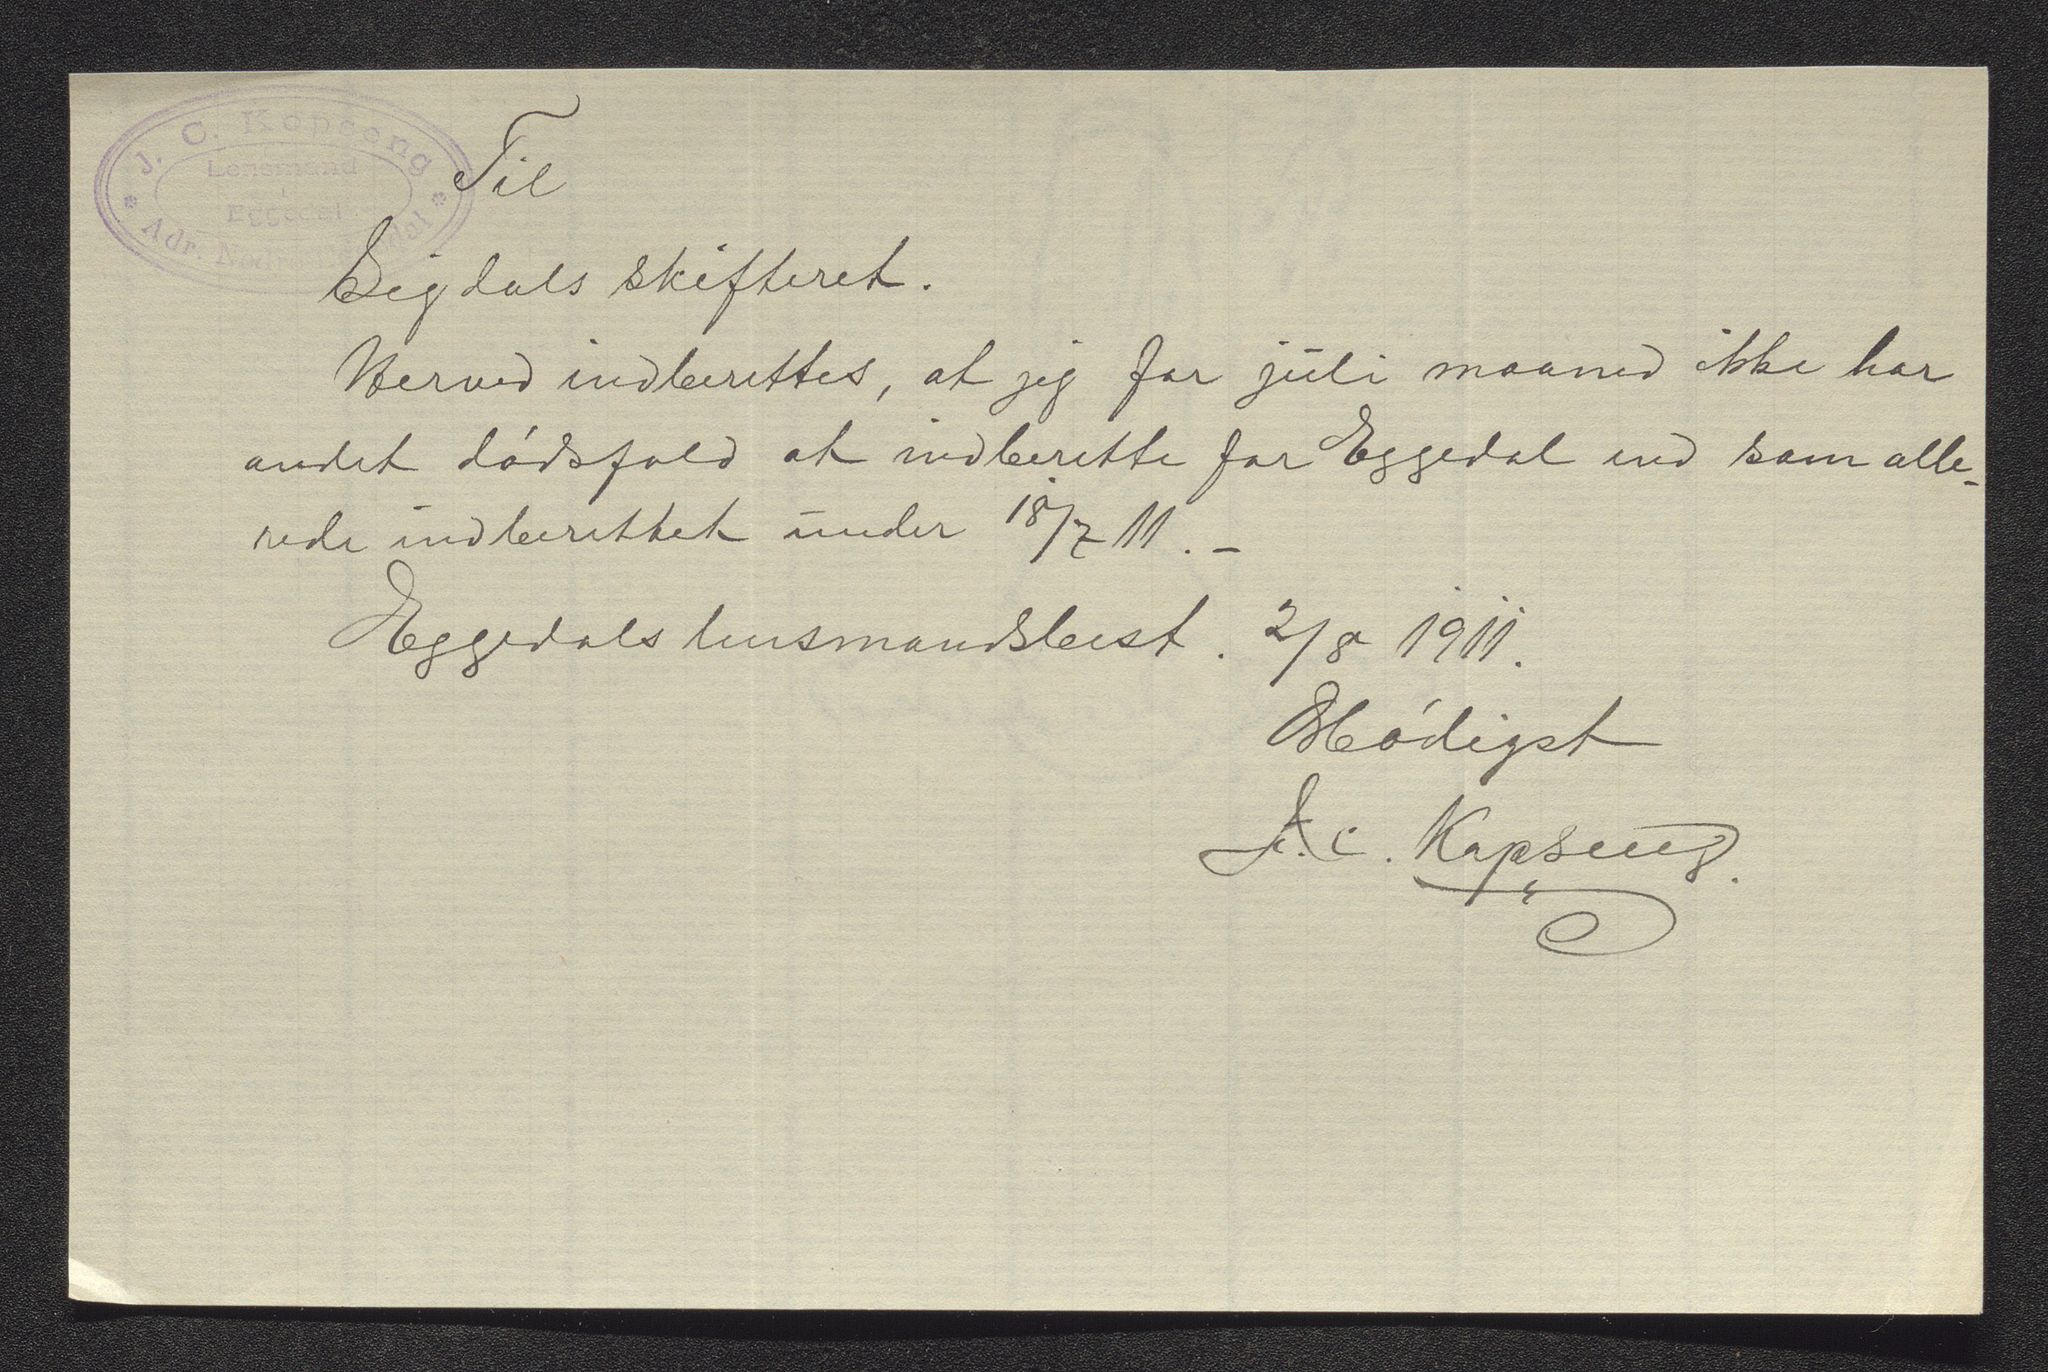 J. C. Kopseng
Lensmand
i
Eggedal
Adr. Nedre Eggedal
Til
Sigdals skifteret.
Herved indberettes, at jeg for juli maaned ikke har
andet dódsfald at indberette for Eggedal end som alle-
rede indberettet under 18/7 11. -
Eggedals lensmandsbest. 2/8 1911.
Ærbódigst
J. C. Kopseng.